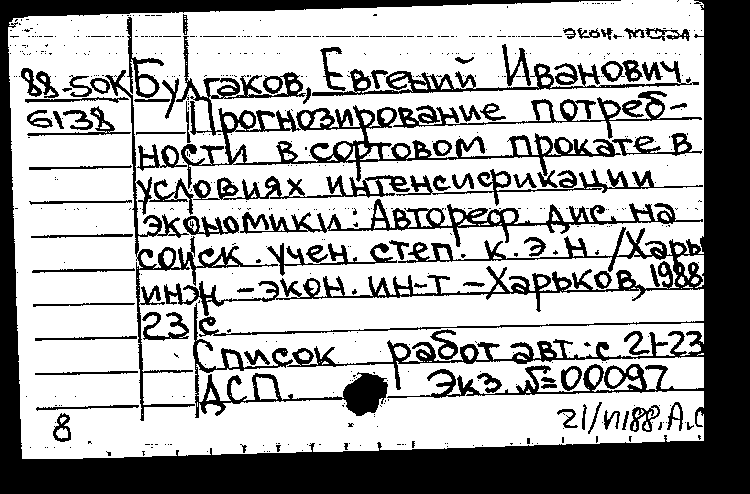 экон. метал.
88-50К Булгаков, Евгений Иванович.
6138 Прогнозирование потреб-
ности в сортовом прокате в
условиях интенсификации
экономики: Автореф. дис. на
соиск. учен. степ. к.э.н. /Харьк
инж-экон. ин-т. -Харьков, 1988
23 с.
Список работ авт.: с 21-23
ДСП. Экз. №00097
8 21/VI88. А.С